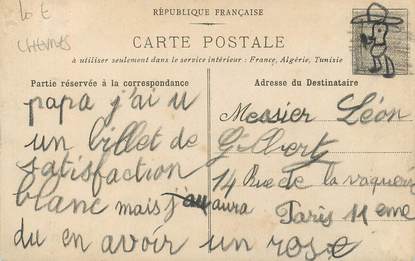 10 E
CHEVRES
RÉPUBLIQUE FRANÇAISE
CARTE POSTALE
à utiliser seulement dans le service intérieur : France, Algérie, Tunisie
Partie réservée à la correspondance
papa j'ai u
un billet de
satisfaction
blanc mais j'au aura
du en avoir un rose
Adresse du Destinataire
Messier Léon
Gilbert
14 Rue de la vaquerie
Paris 11 eme